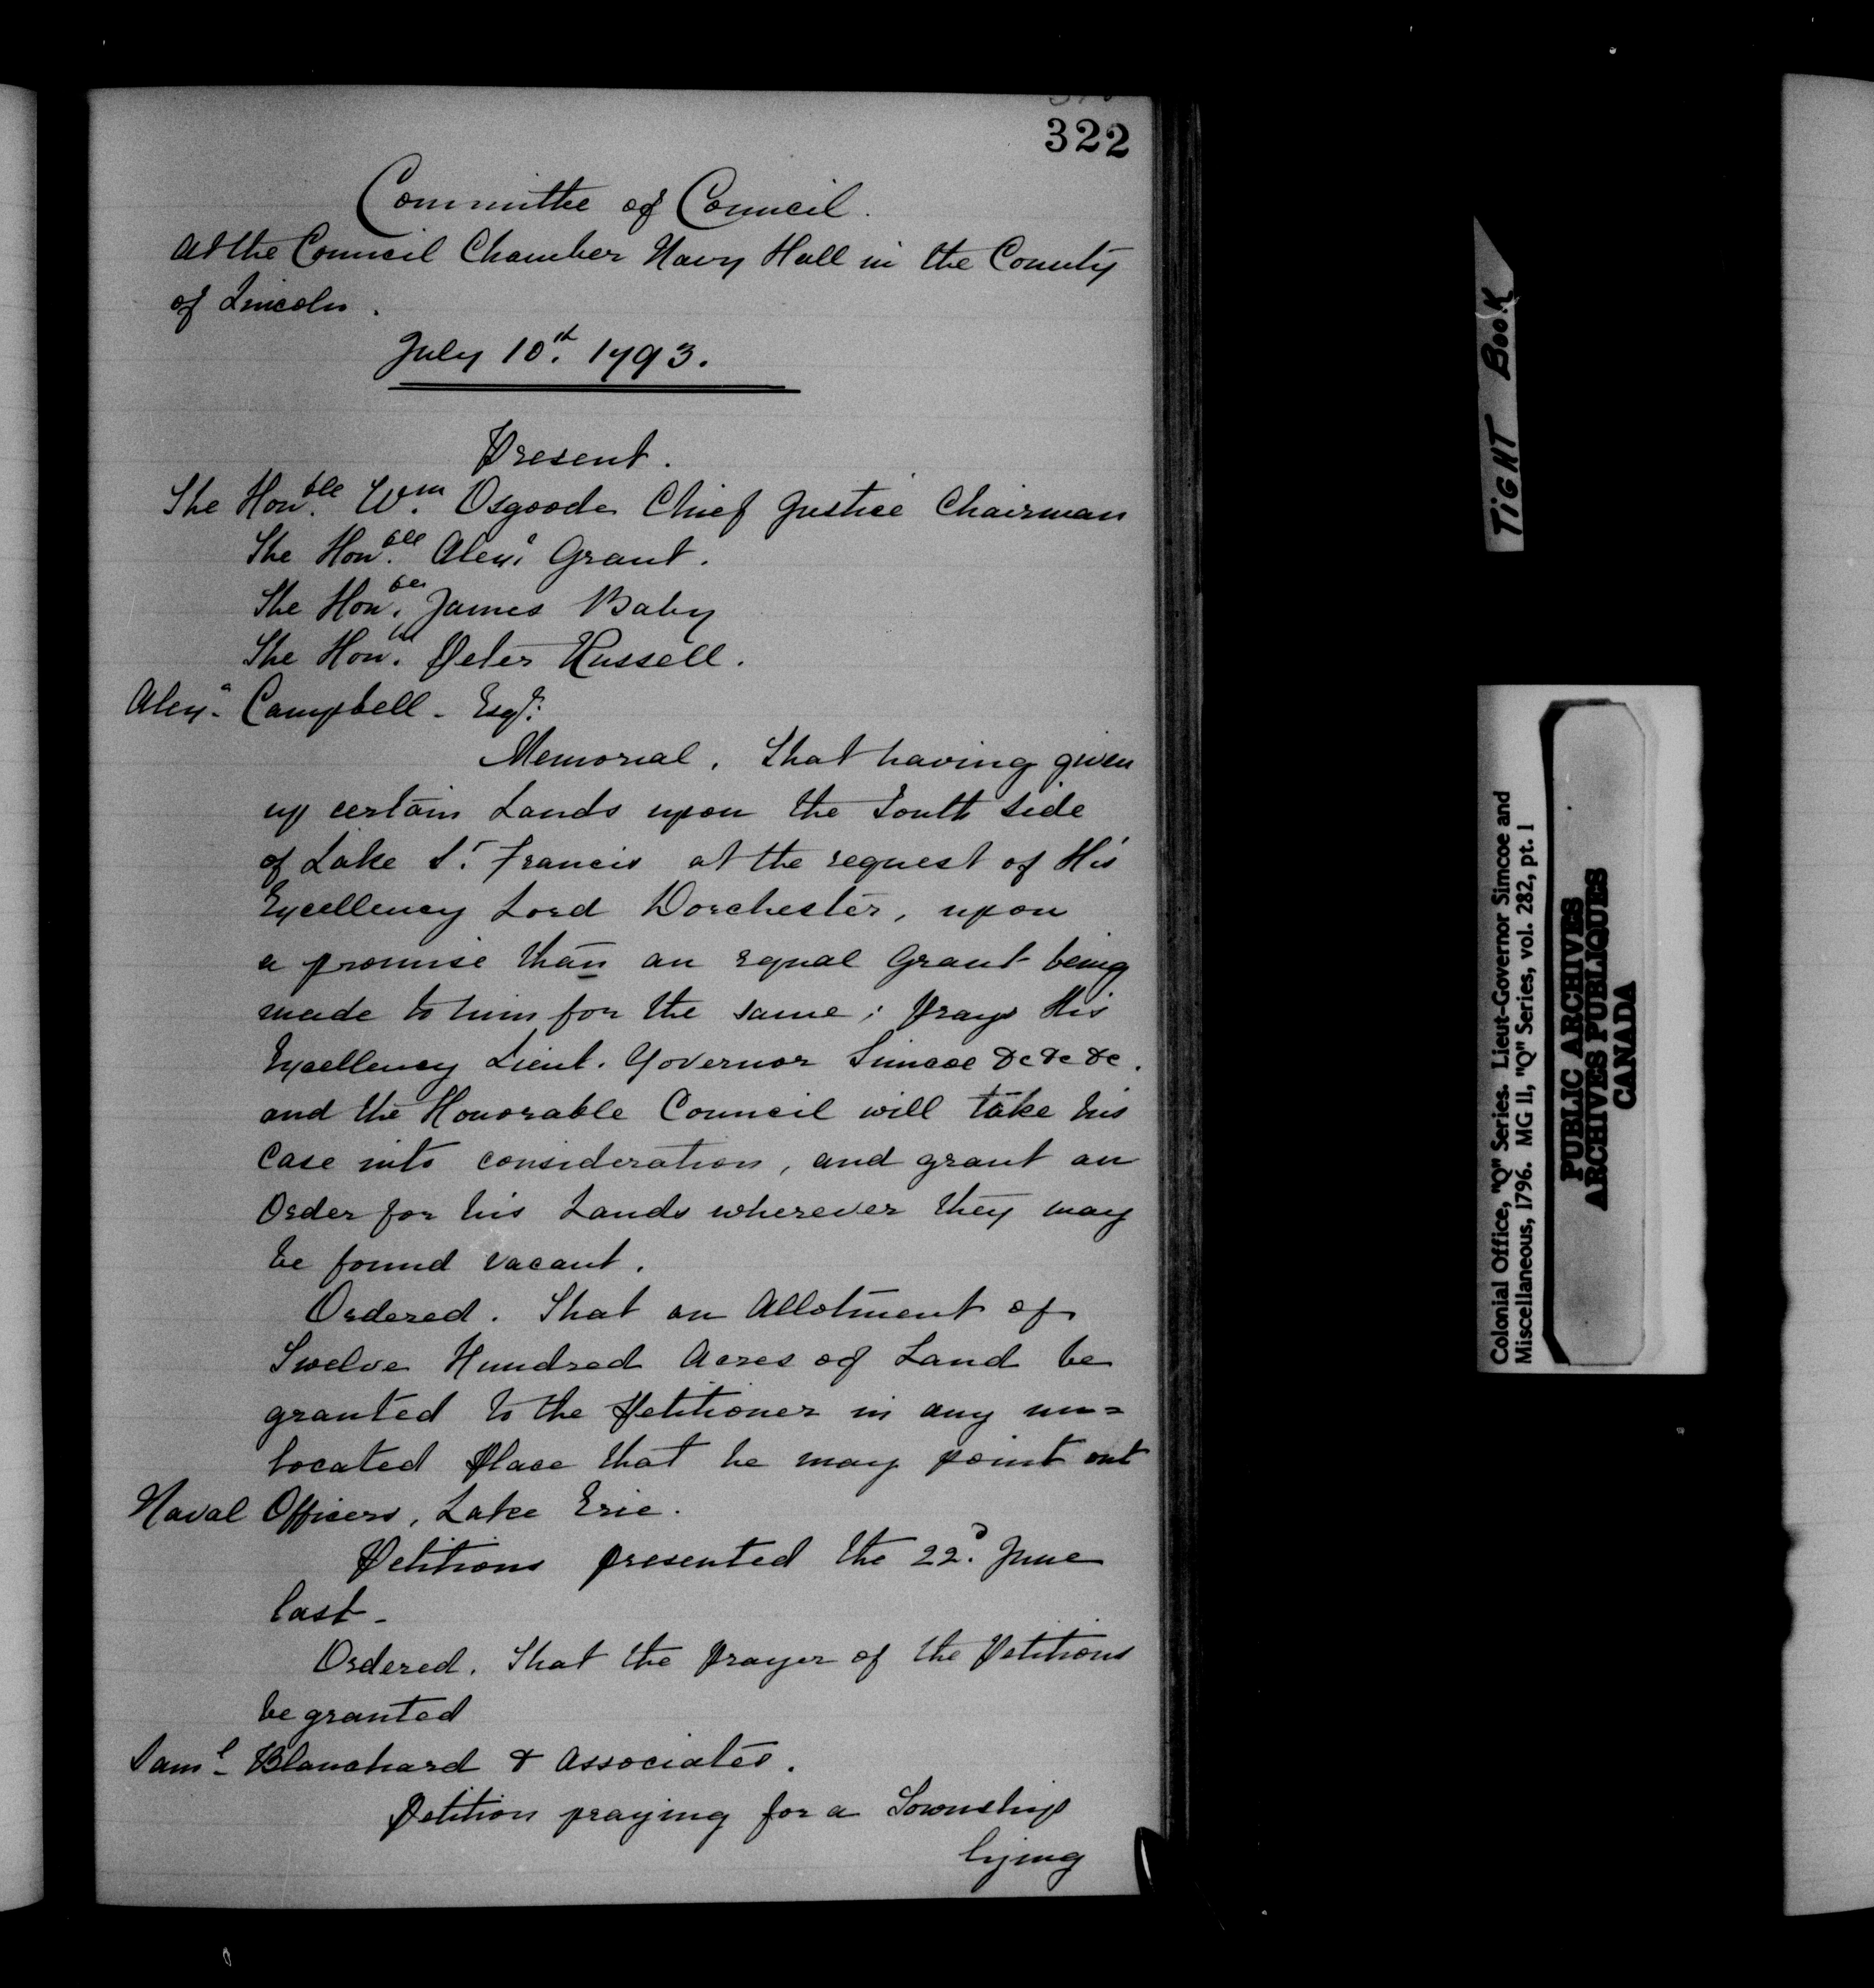 322
Committee of Council.
At the Council Chamber Navy Hall in the County
of Lincoln.
July 10th. 1793.
Present.
The Honble. Wm. Osgoode Chief Justice Chairman
The Honble. Alexr Grant.
The Honble. James Baby
The Honble. Peter Russell.
Alexr Campbell - Esqr.
Memorial. That having given
up certain Lands upon the South side
of Lake St. Francis at the request of His
Excellency Lord Dorchester, upon
a promise than an equal Grant being
made to him for the same; prays His
Excellency Lieut. Governor Simcoe &c &c &c.
and the Honorable Council will take his
Case into consideration, and grant an
Order for his Lands wherever they may
be found vacant.
Ordered. That an Allotment of
Twelve Hundred Acres of Land be
granted to the Petitioner in any un=
located Place that he may point out
Naval Officers, Lake Erie.
Petitions presented the 22d. June
last -
Ordered. That the prayer of the Petitions
be granted
Saml Blanchard & Associates.
Petition praying for a Township
lying
TIGHT BOOK
Colonial Office, "Q" Series. Lieut-Governor Simcoe and
Miscellaneous, 1796. MG 11, "Q" Series, vol. 282, pt. 1
PUBLIC ARCHIVES
ARCHIVES PUBLIQUES
CANADA